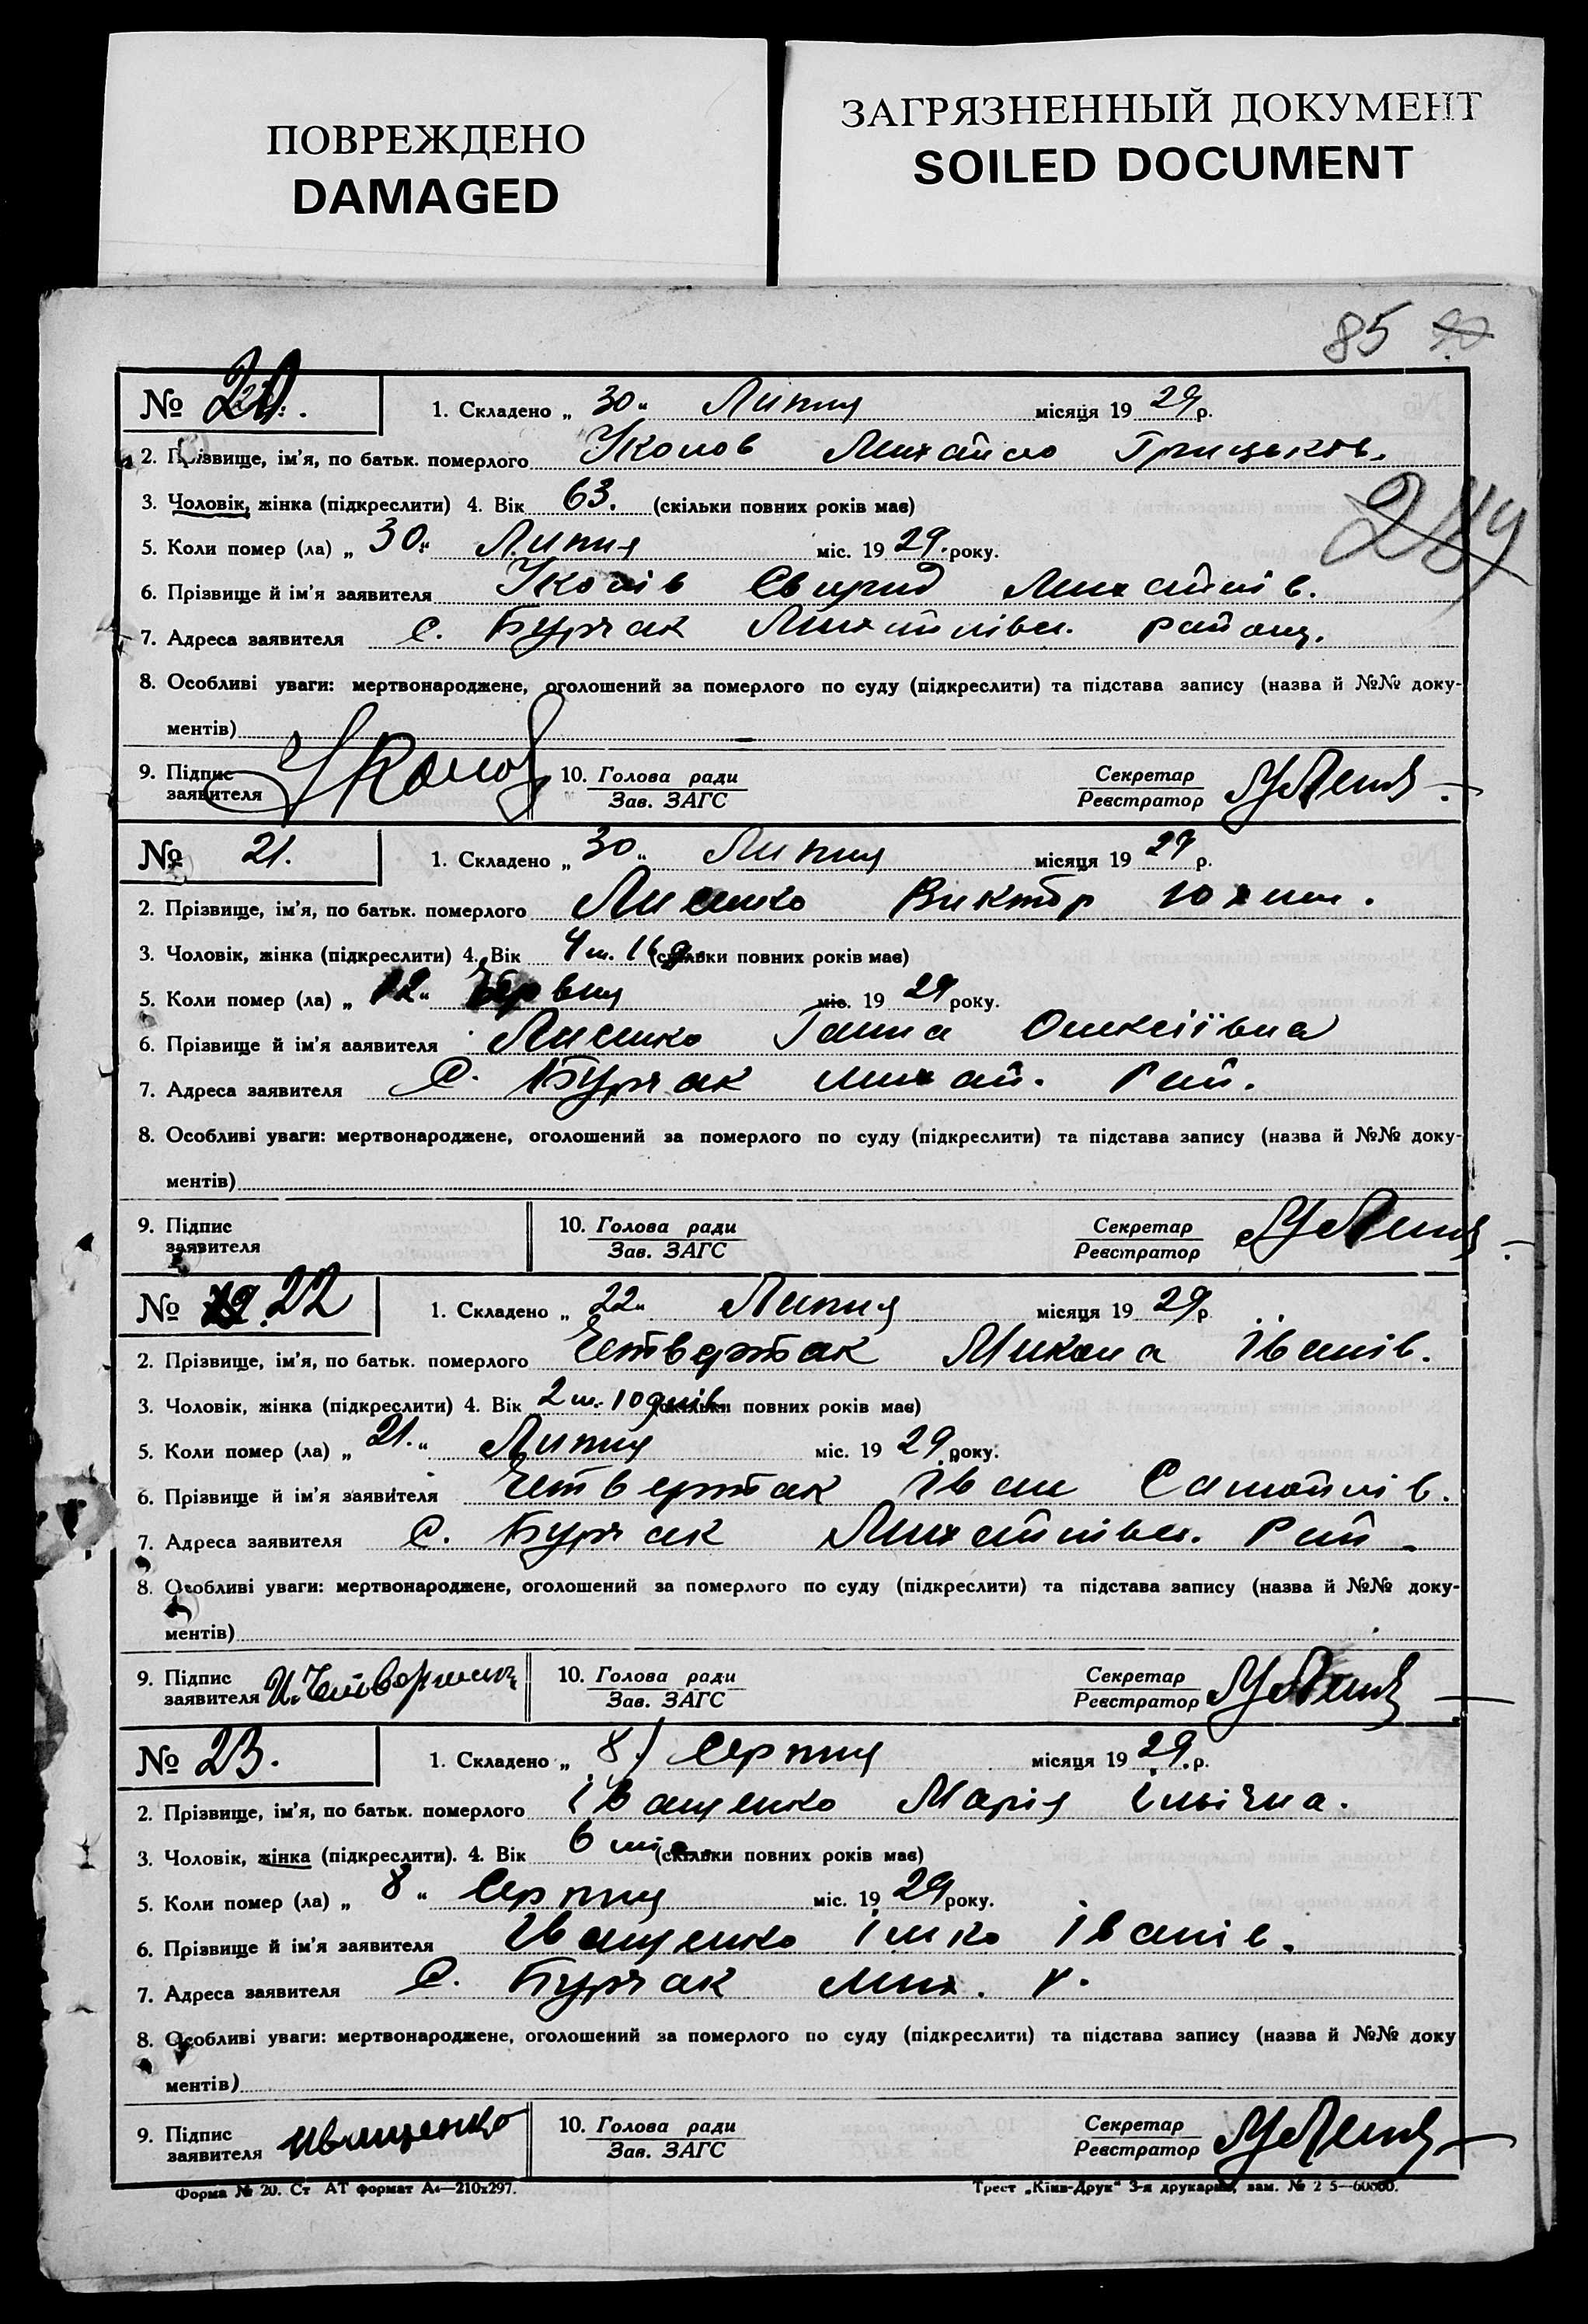 ПОВРЕЖДЕНО
DAMAGED
ЗАГРЯЗНЕННЫЙ ДОКУМЕНТ
SOILED DOCUMENT
85
№ 20. 1. Складено „ 30 “ Липня місяця 19 29 р.
2. Прізвище, ім'я, по батьк. померлого Уколов Михайло Грицьков.
3. Чоловік, жінка (підкреслити) 4. Вік 63. (скільки повних років має)
5. Коли помер (ла) „ 30 “ Липня міс. 19 29. року.
6. Прізвище й ім'я заявителя Уколів Свирид Михайлів.
7. Адреса заявителя с. Бурчак Михайлівськ. району.
8. Особливі уваги: мертвонароджене, оголошений за померлого по суду (підкреслити) та підстава запису (назва й №№ доку-
ментів)
9. Підпис заявителя Уколов 10. Голова ради Зав. ЗАГС Секретар Реєстратор
№ 21. 1. Складено „ 30 “ Липня місяця 19 29 р.
2. Прізвище, ім'я, по батьк. померлого Виктор Юхим.
3. Чоловік, жінка (підкреслити) 4. Вік 4 м. (скільки повних років має)
5. Коли помер (ла) „ 12 “ Червня міс. 19 29 року.
6. Прізвище й ім'я заявителя Ганна Олексіївна
7. Адреса заявителя С. Бурчак михай. Рай.
8. Особливі уваги: мертвонароджене, оголошений за померлого по суду (підкреслити) та підстава запису (назва й №№ доку-
ментів)
9. Підпис заявителя 10. Голова ради Зав. ЗАГС Секретар Реєстратор
№ 22 1. Складено „ 22 “ Липня місяця 19 29 р.
2. Прізвище, ім'я, по батьк. померлого Четвертак Микола Іванів.
3. Чоловік, жінка (підкреслити) 4. Вік 2 м. 10 днів (скільки повних років має)
5. Коли помер (ла) „ 21. “ Липня міс. 19 29 року.
6. Прізвище й ім'я заявителя Четвертак Іван Самойлів.
7. Адреса заявителя С. Бурчак Михайлівськ. Рай.
8. Особливі уваги: мертвонароджене, оголошений за померлого по суду (підкреслити) та підстава запису (назва й №№ доку-
ментів)
9. Підпис заявителя 10. Голова ради Зав. ЗАГС Секретар Реєстратор
№ 23. 1. Складено „ 8 Серпня місяця 19 29. р.
2. Прізвище, ім'я, по батьк. померлого Іващенко Марія Ільїчна.
3. Чоловік, жінка (підкреслити). 4. Вік 6 міс. (скільки повних років має)
5. Коли помер (ла) „ 8 “ Серпня міс. 19 29 року.
6. Прізвище й ім'я заявителя Іващенко Ілько Іванів.
7. Адреса заявителя С. Бурчак Мих. р.
8. Особливі уваги: мертвонароджене, оголошений за померлого по суду (підкреслити) та підстава запису (назва й №№ доку
ментів)
9. Підпис заявителя Иващенко 10. Голова ради Зав. ЗАГС Секретар Реєстратор
Форма № 20. Ст АТ формат А4—210х297. Трест „Київ-Друк“ 3-я друкарня, зам. № 2